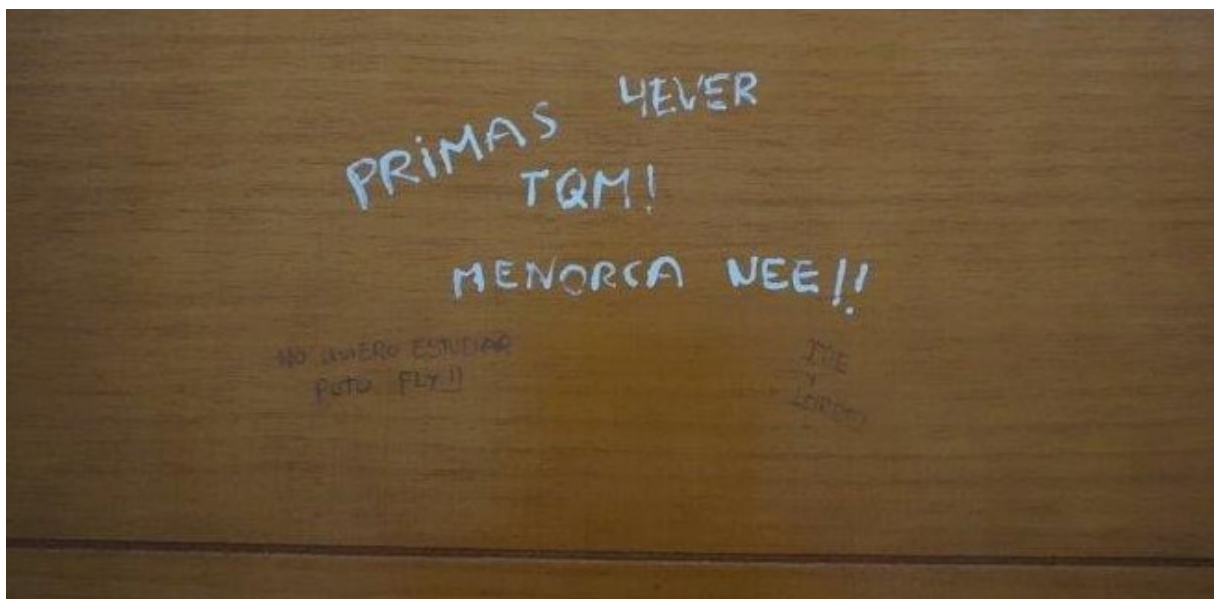 PRiMAS 4EVER
TQM!
MENORCA WEE!!
NO QUIERO ESTUDIAR
PUTO FLY!!